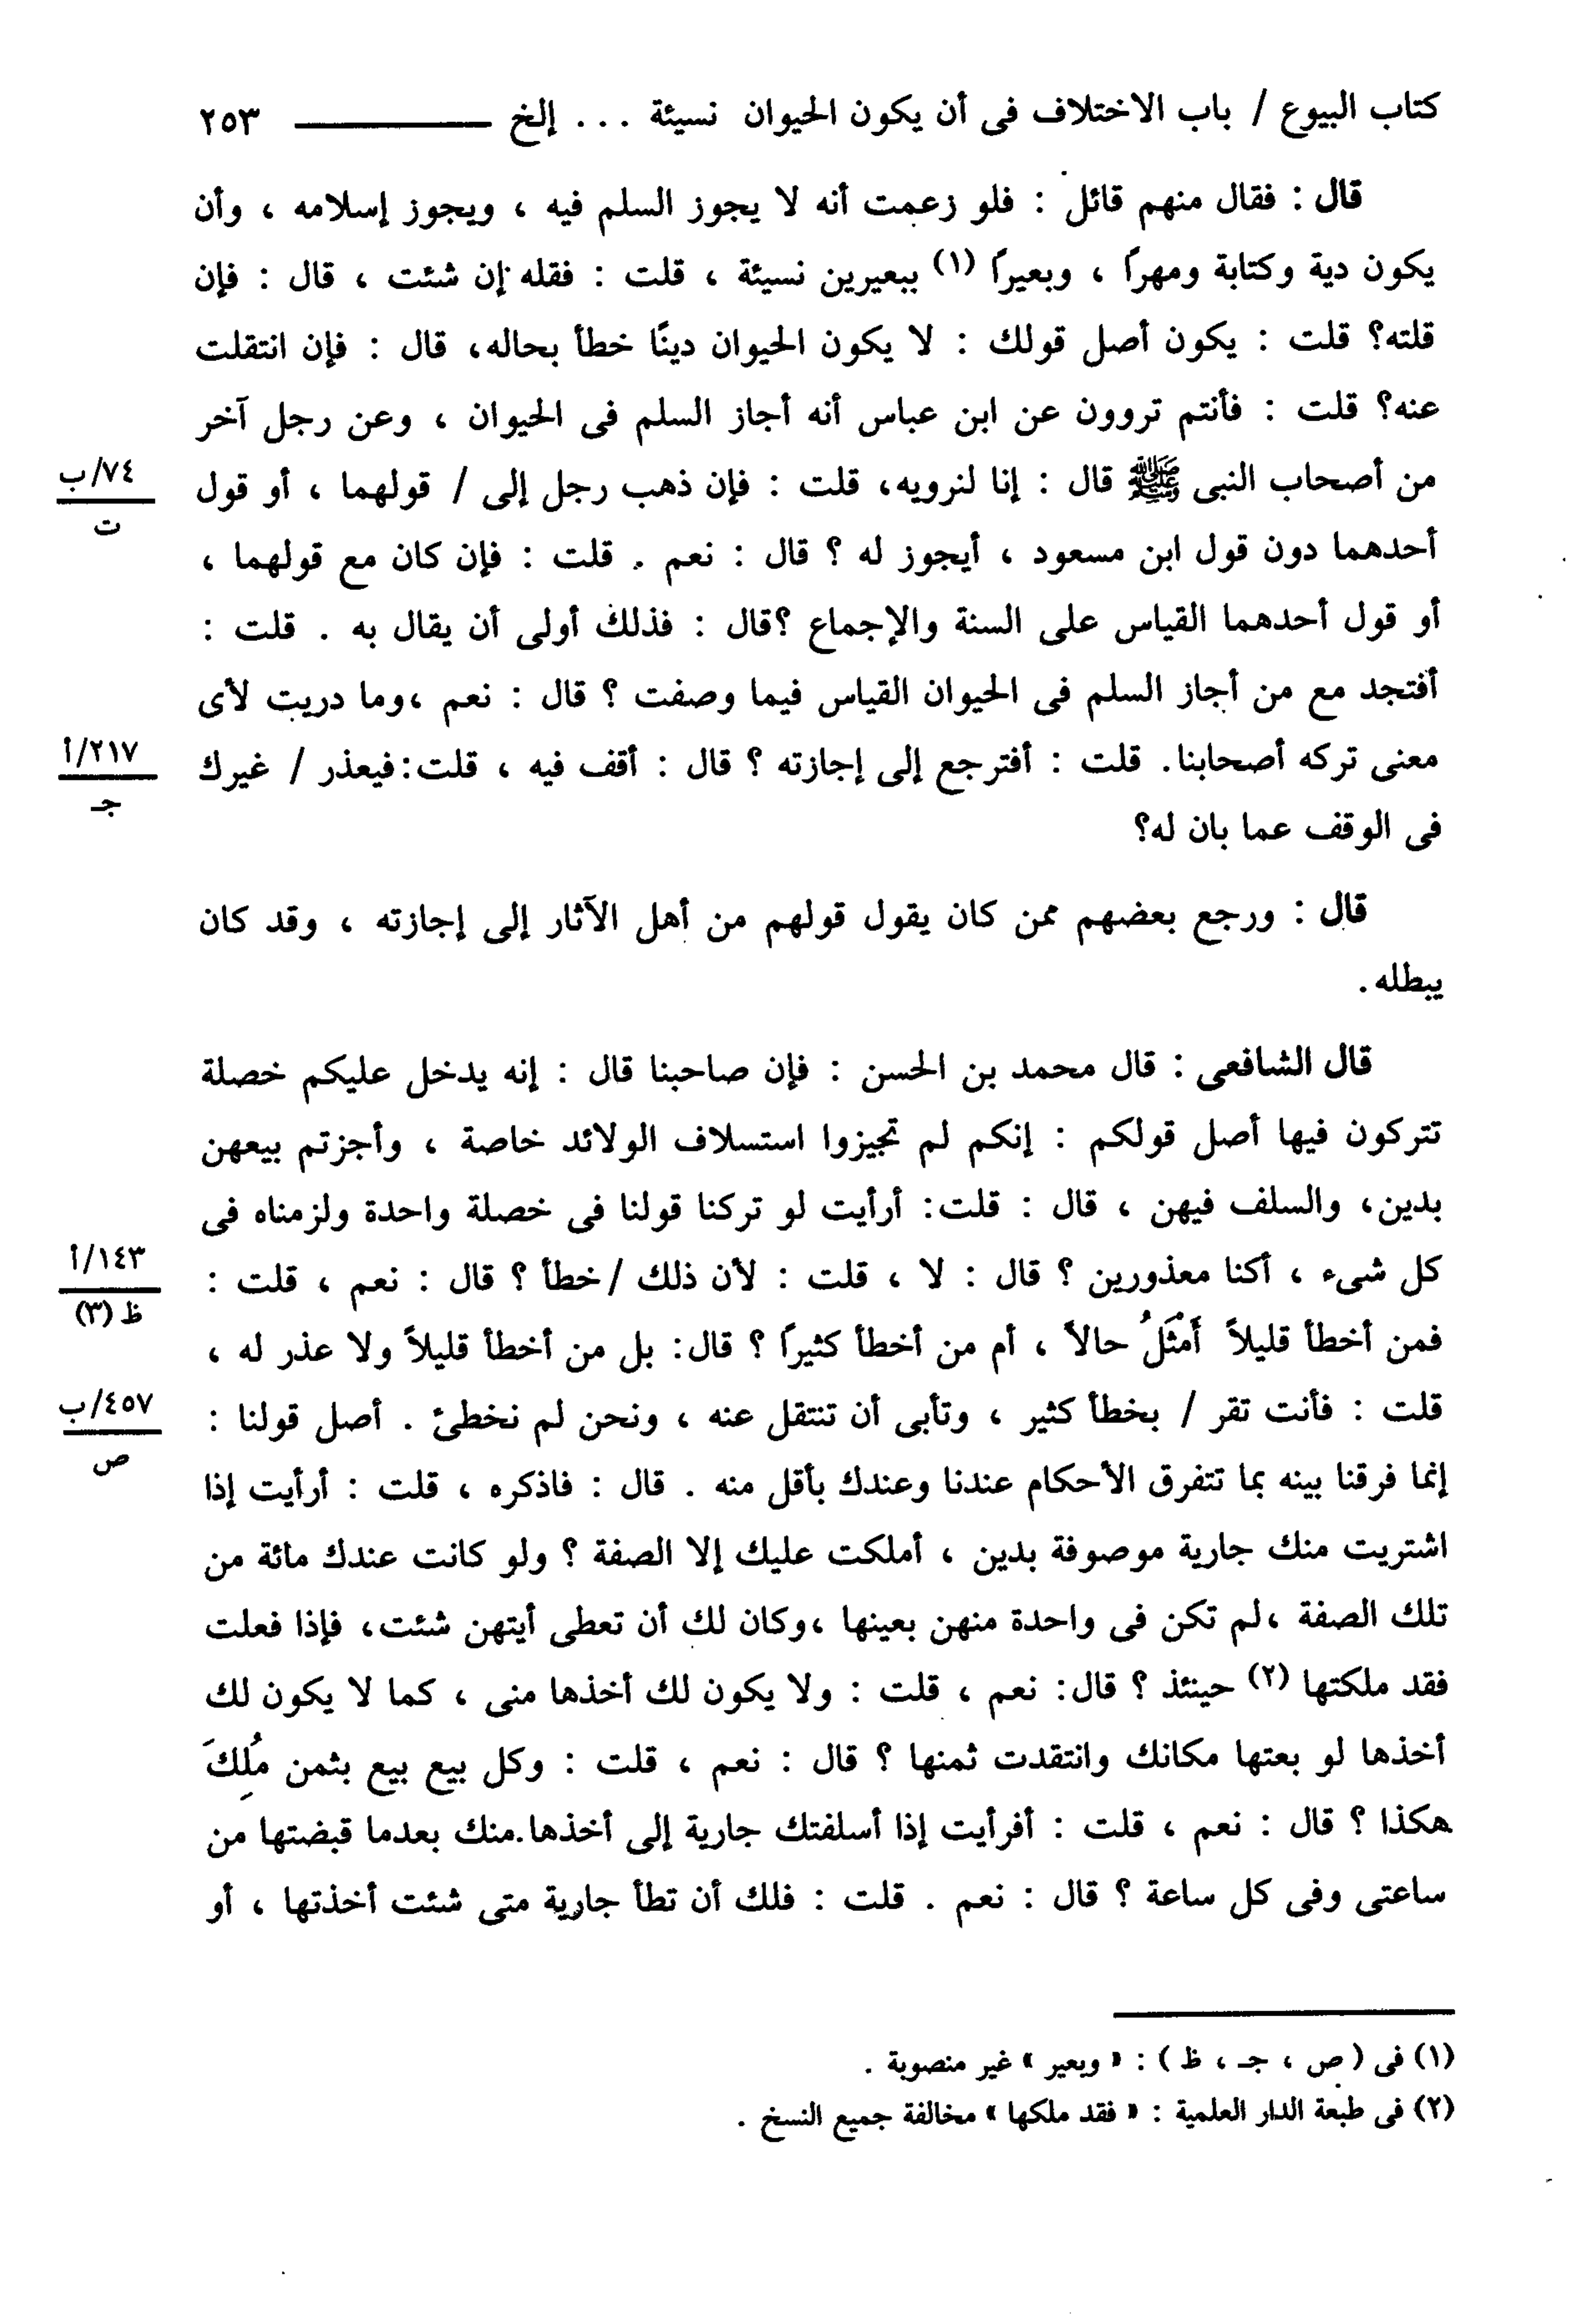 كتاب البيوع / باب الاختلاف فى أن يكون الحيوان نسيئة ... إلخ ٢٥٣
قال : فقال منهم قائل : فلو زعمت أنه لا يجوز السلم فيه ، ويجوز إسلامه ، وأن
يكون دية وكتابة ومهراً ، وبعيراً (١) ببعيرين نسيئة ، قلت : فقله إن شئت ، قال : فإن
قلته؟ قلت : يكون أصل قولك : لا يكون الحيوان دينًا خطأ بحاله، قال : فإن انتقلت
عنه؟ قلت : فأنتم تروون عن ابن عباس أنه أجاز السلم فى الحيوان ، وعن رجل آخر
من أصحاب النبى ﷺ قال : إنا لنرويه، قلت : فإن ذهب رجل إلى / قولهما ، أو قول
٧٤/ب
ت
أحدهما دون قول ابن مسعود ، أيجوز له ؟ قال : نعم . قلت : فإن كان مع قولهما ،
أو قول أحدهما القياس على السنة والإجماع ؟قال : فذلك أولى أن يقال به . قلت :
أفتجد مع من أجاز السلم فى الحيوان القياس فيما وصفت ؟ قال : نعم ،وما دريت لأى
معنى تركه أصحابنا. قلت : أفترجع إلى إجازته ؟ قال : أقف فيه ، قلت:فيعذر / غيرك
٢١٧/أ
جـ
فى الوقف عما بان له؟
قال : ورجع بعضهم ممن كان يقول قولهم من أهل الآثار إلى إجازته ، وقد كان
يبطله .
قال الشافعى : قال محمد بن الحسن : فإن صاحبنا قال : إنه يدخل عليكم خصلة
تتركون فيها أصل قولكم : إنكم لم تجيزوا استسلاف الولائد خاصة ، وأجزتم بيعهن
بدين، والسلف فيهن ، قال : قلت: أرأيت لو تركنا قولنا فى خصلة واحدة ولزمناه فى
كل شىء ، أكنا معذورين ؟ قال : لا ، قلت : لأن ذلك /خطأ ؟ قال : نعم ، قلت :
١٤٣/أ
ظ (٣)
فمن أخطأ قليلاً أَمْثَلُ حالاً ، أم من أخطأ كثيراً ؟ قال: بل من أخطأ قليلاً ولا عذر له ،
قلت : فأنت تقر / بخطأ كثير ، وتأبى أن تنتقل عنه ، ونحن لم نخطئ . أصل قولنا :
٤٥٧/ب
ص
إنما فرقنا بينه بما تتفرق الأحكام عندنا وعندك بأقل منه . قال : فاذكره ، قلت : أرأيت إذا
اشتريت منك جارية موصوفة بدين ، أملكت عليك إلا الصفة ؟ ولو كانت عندك مائة من
تلك الصفة ،لم تكن فى واحدة منهن بعينها ،وكان لك أن تعطى أيتهن شئت، فإذا فعلت
فقد ملكتها (٢) حينئذ ؟ قال: نعم ، قلت : ولا يكون لك أخذها منى ، كما لا يكون لك
أخذها لو بعتها مكانك وانتقدت ثمنها ؟ قال : نعم ، قلت : وكل بيع بيع بثمن مُلِكَ
هكذا ؟ قال : نعم ، قلت : أفرأيت إذا أسلفتك جارية إلى أخذها.منك بعدما قبضتها من
ساعتى وفى كل ساعة ؟ قال : نعم . قلت : فلك أن تطأ جارية متى شئت أخذتها ، أو
(١) فى ( ص ، جـ ، ظ ) : « وبعير » غير منصوبة .
(٢) فى طبعة الدار العلمية : « فقد ملكها » مخالفة جميع النسخ .